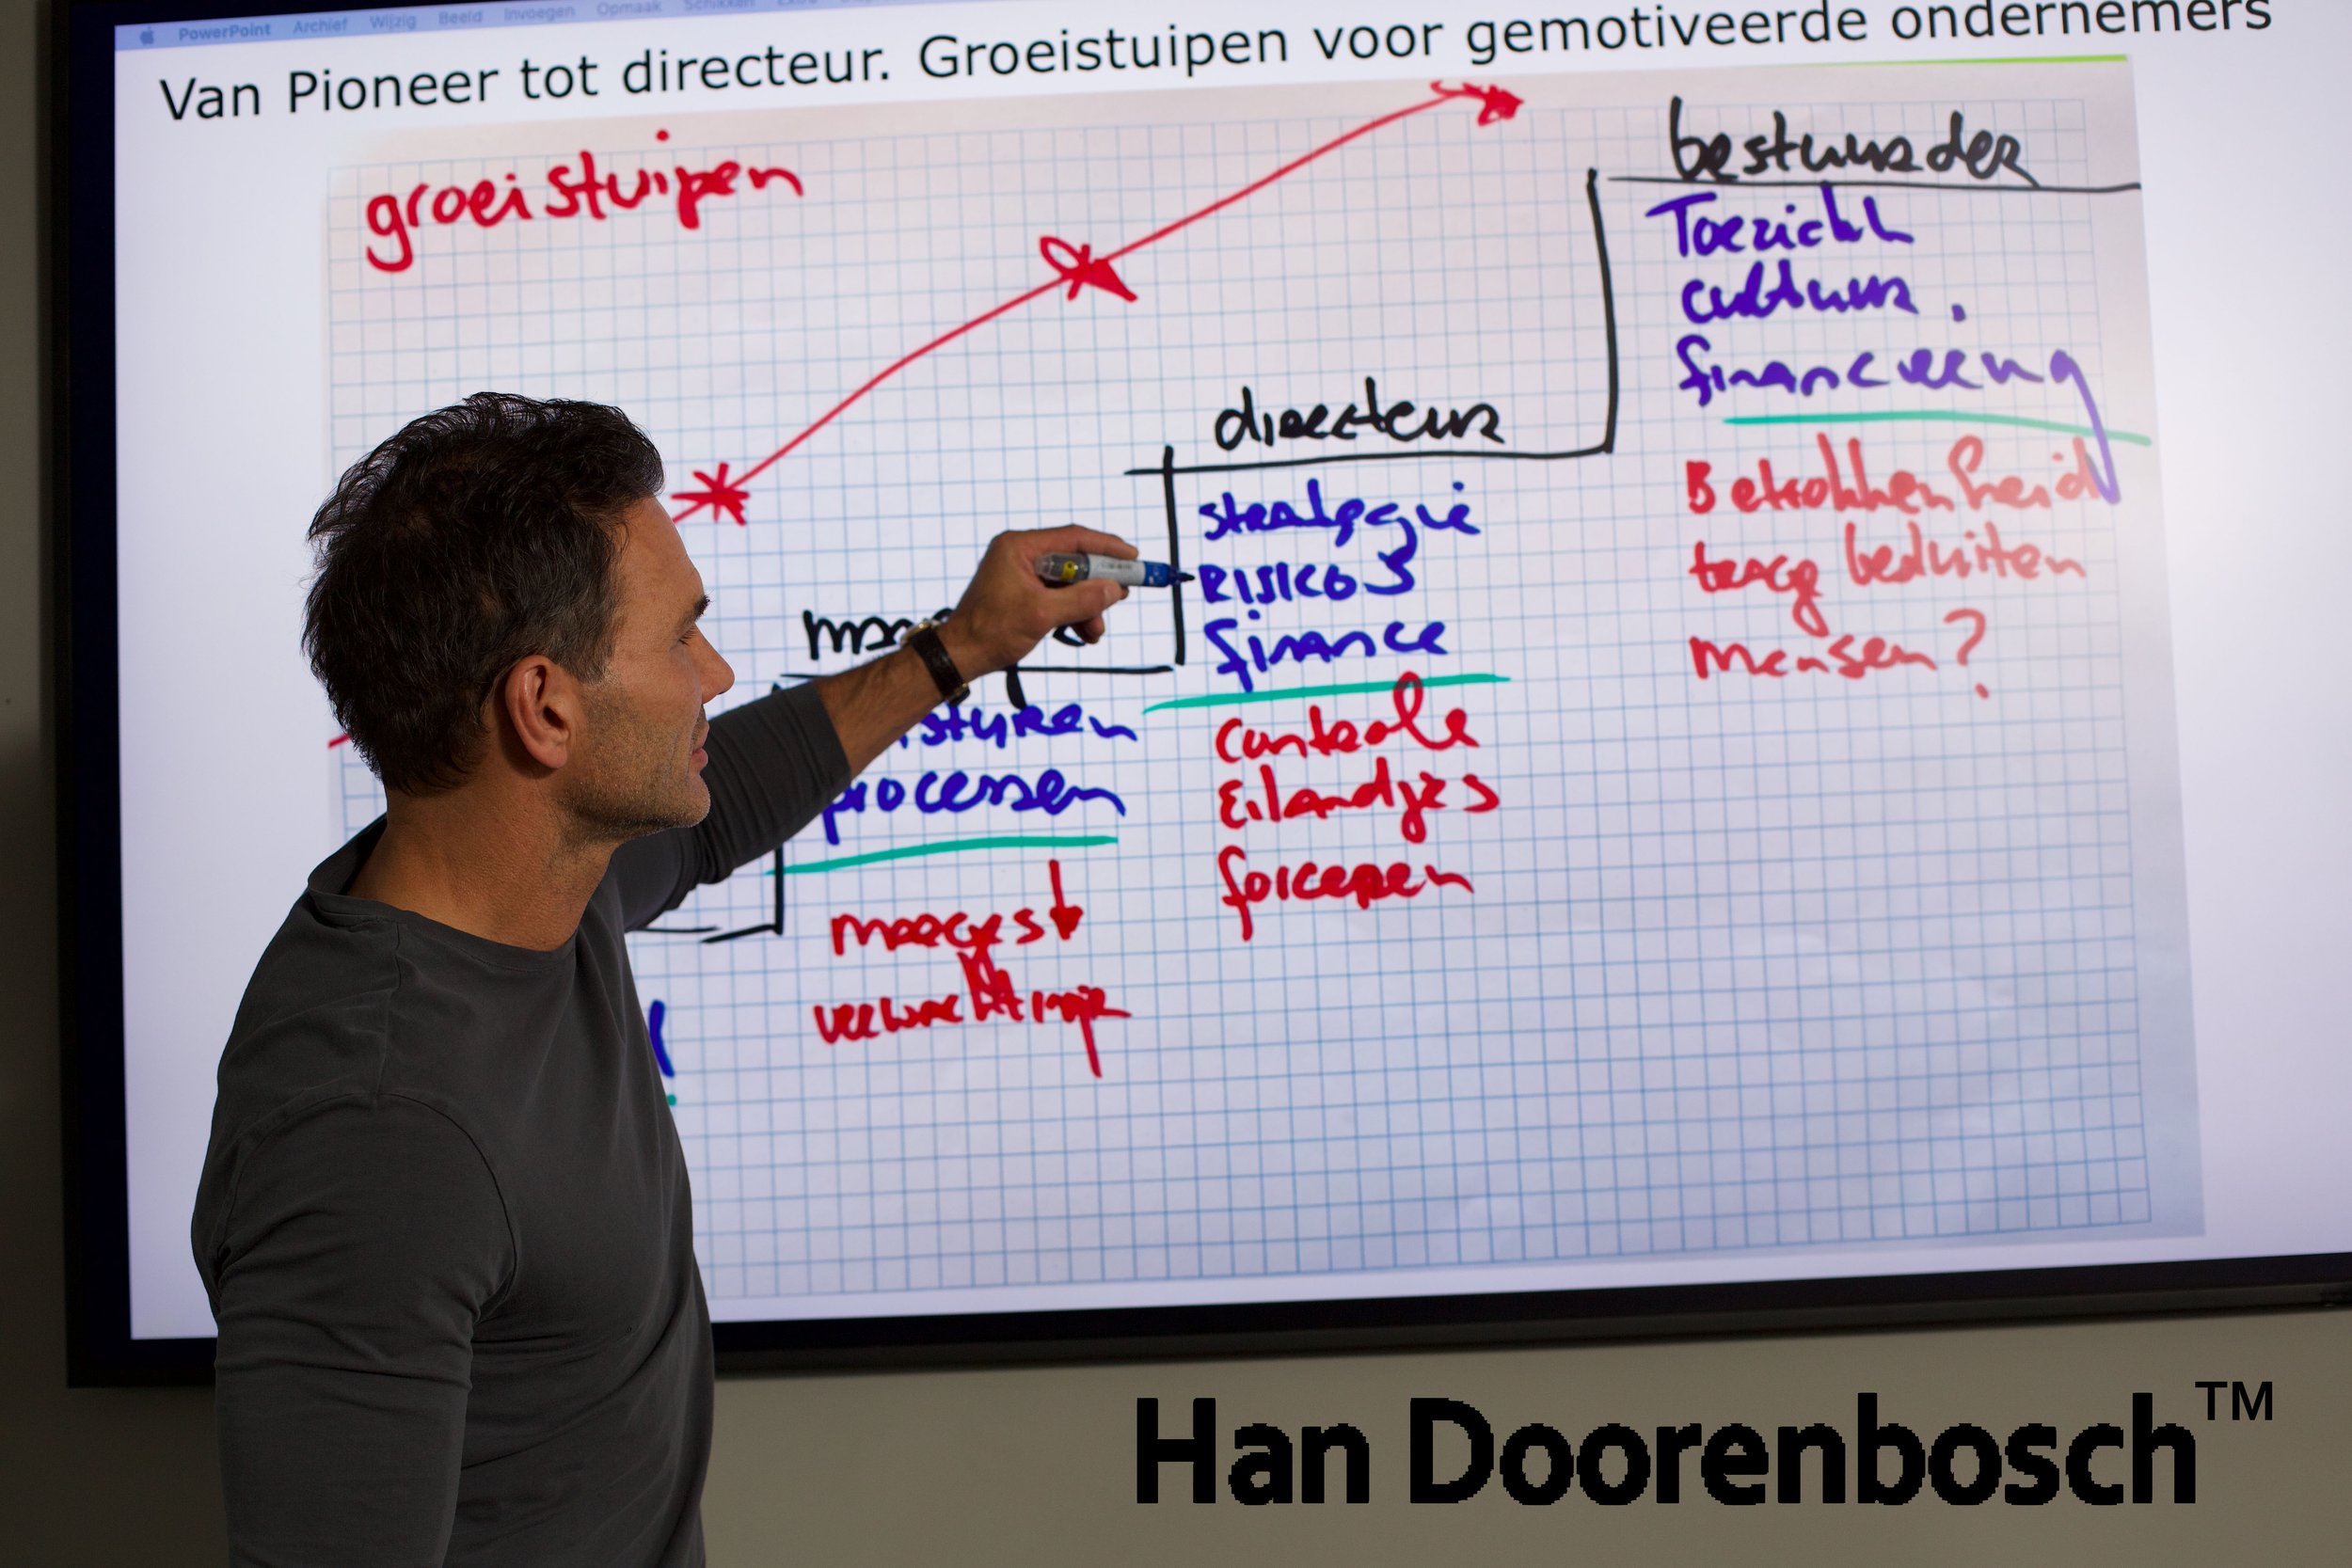 PowerPoint Archief Wijzig Beeld Invoegen Opmaak Schikken Extra
Van Pioneer tot directeur. Groeistuipen voor gemotiveerde ondernemers
groeistuipen
bestuurder
Toezicht
cultuur.
financiering
Betrokkenheid
traag besluiten
mensen?
directeur
strategie
Risico's
finance
controle
Eilandjes
forceren
processen
marges
Han Doorenbosch™